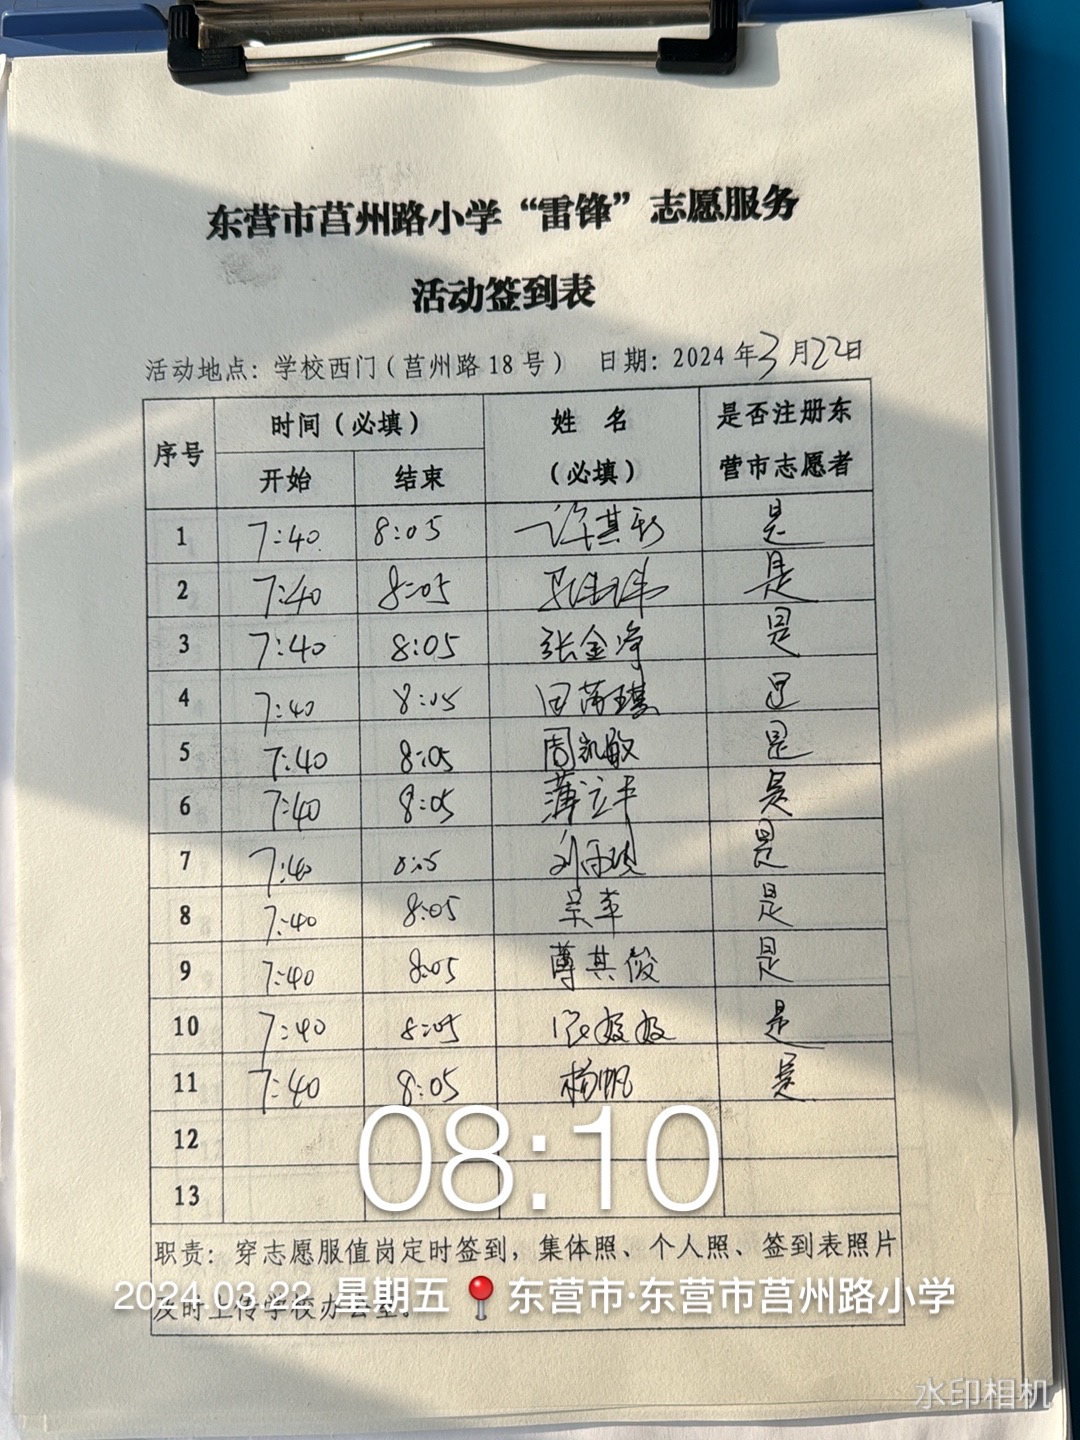 东营市莒州路小学“雷锋”志愿服务
活动签到表
活动地点：学校西门（莒州路18号） 日期：2024年3月22日
序号 时间（必填） 姓 名 是否注册东
开始 结束 （必填） 营市志愿者
1 7:40 8:05 许其彩 是
2 7:40 8:05 是
3 7:40 8:05 张金净 是
4 7:40 8:05 田 是
5 7:40 8:05 周凯敏 是
6 7:40 8:05 薄立平 是
7 7:40 8:05 刘雨 是
8 7:40 8:05 吴苹 是
9 7:40 8:05 薄其俊 是
10 7:40 8:05 张 是
11 7:40 8:05 杨帆 是
12
13
08:10
职责：穿志愿服值岗定时签到，集体照、个人照、签到表照片
及时上传学校办公室。
2024.03.22 星期五 东营市·东营市莒州路小学
水印相机